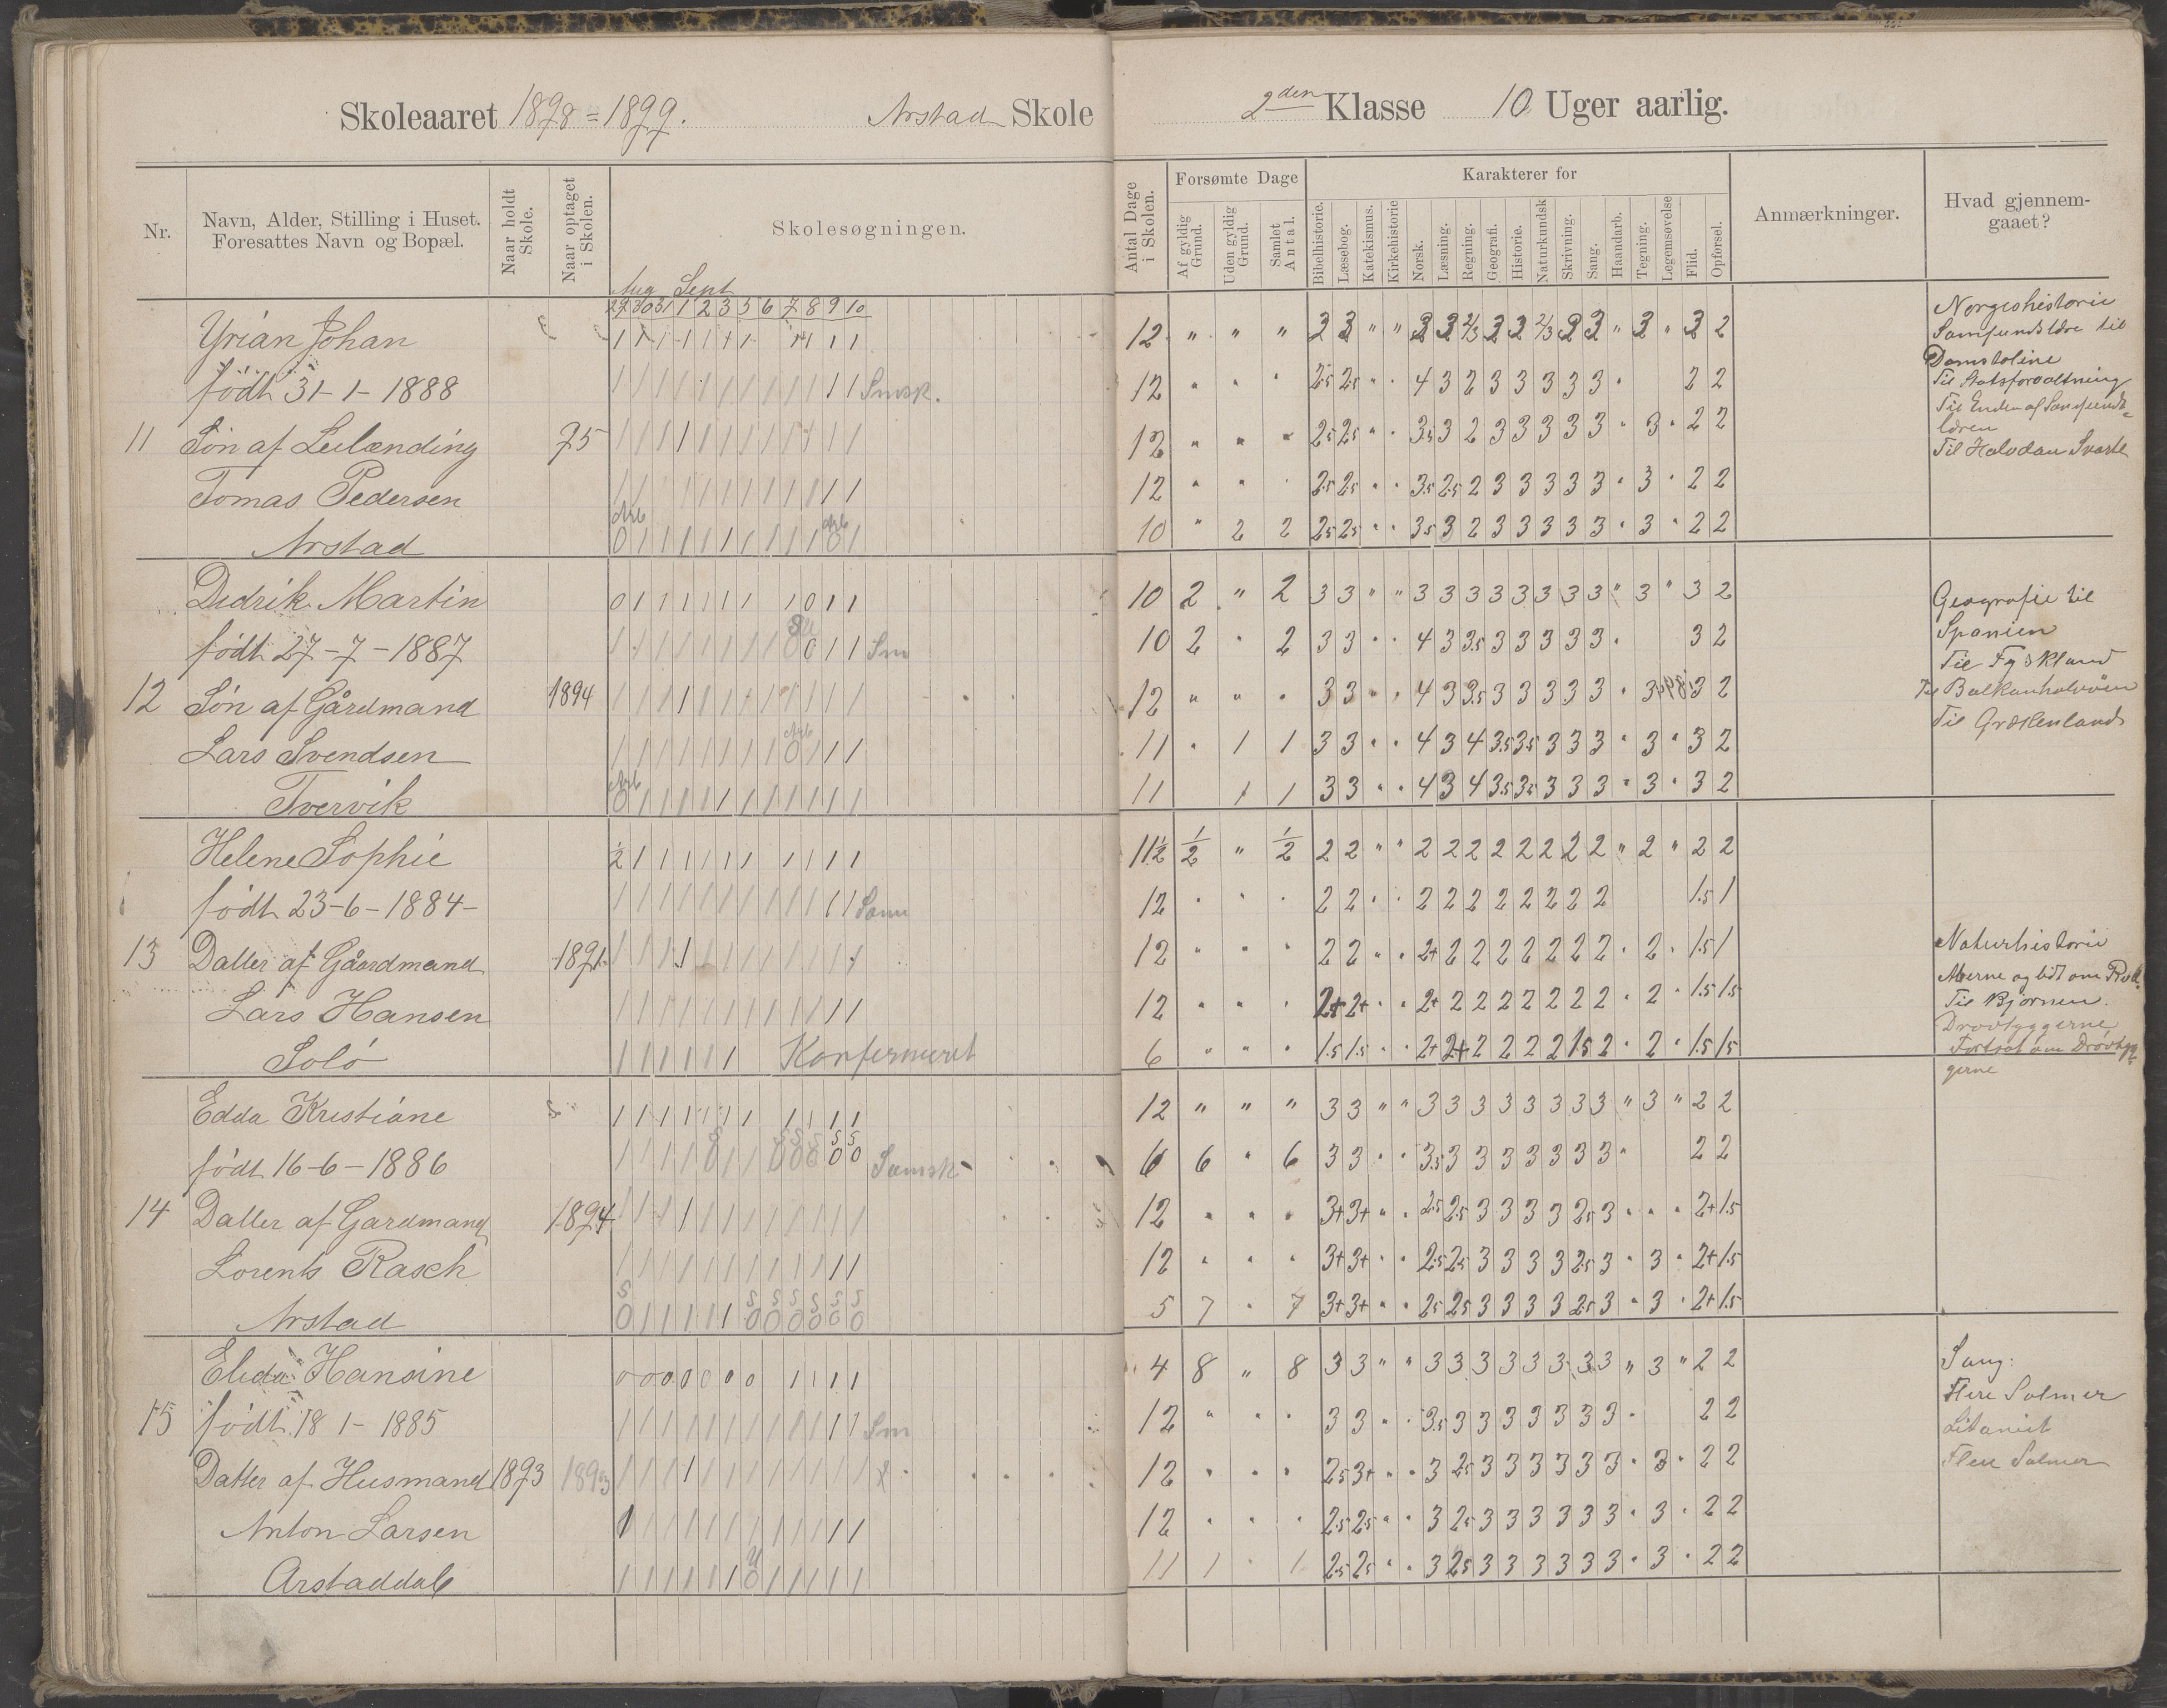 Skoleaaret 1898 = 1899. Arstad Skole
2den Klasse 10 Uger aarlig.
Nr.
Navn, Alder, Stilling i Huset.
Foresattes Navn og Bopæl.
Naar holdt Skole.
Naar optaget i Skolen.
Skolesøgningen.
Antal Dage i Skolen.
Forsømte Dage
Af gyldig Grund.
Uden gyldig Grund.
Samlet Antal.
Karakterer for
Bibelhistorie.
Læsebog.
Katekismus.
Kirkehistorie
Norsk.
Læsning.
Regning.
Geografi.
Historie.
Naturkundsk
Skrivning.
Sang.
Haandarb.
Tegning.
Legemsøvelse
Flid.
Opførsel.
Anmærkninger.
Hvad gjennem-
gaaet?
Aug Sept
29 30 31 1 2 3 5 6 7 8 9 10
Yrian Johan 1 1 1 1 1 1 1 1 1 1 1 12 " " "
født 31-1-1888 Smsk. 12 " " " 25 25 " " 4 3 2 3 3 3 3 3 " 2 2
11 Søn af Leilænding 75 12 " " " 25 25 " " 35 3 2 3 3 3 3 3 " 3 " 2 2
Tomas Pedersen 12 " " " 25 25 " " 35 25 2 3 3 3 3 3 " 3 " 2 2
Arstad 10 " 2 2 25 25 " " 35 3 2 3 3 3 3 3 " 3 " 2 2
Norgeshistorie
Samfundslære til
Domstolene
Til Statsforvaltning
Til Enden af Samfunds-
læren
Til Halvdan Svarte
Dedrik Martin 0 1 1 1 1 1 1 1 0 1 1 10 2 " 2 3 3 " " 3 3 3 3 3 3 3 3 " 3 " 3 2
født 27-7-1887 Sm 10 2 " 2 3 3 " " 4 3 35 3 3 3 3 3 " 3 2
12 Søn af Gårdmand 1894 12 " " " 3 3 " " 4 3 35 3 3 3 3 3 " 3 3 2
Lars Svendsen 11 " 1 1 3 3 " " 4 3 4 35 35 3 3 3 " 3 " 3 2
Tvervik 11 1 1 3 3 " " 4 3 4 35 35 3 3 3 " 3 " 3 2
Geografie til
Spanien
Til Tyskland
Til Balkanhalvøen
Til Grækenland
Helene Sophie ½ 1 1 1 1 1 1 1 1 1 1 11½ ½ " ½ 2 2 " " 2 2 2 2 2 2 2 2 " 2 " 2 2
født 23-6-1884- Sam 12 " " " 2 2 " " 2 2 2 2 2 2 2 2 1.5 1
13 Datter af Gåardmand 1891 12 " " " 2 2 " " 2+ 2 2 2 2 2 2 2 " 2 " 1.5 1
Lars Hansen 12 " " " 2+ 2+ " " 2+ 2 2 2 2 2 2 2 " 2 " 1.5 1.5
Solø 1 1 1 1 1 1 Konfirmeret 6 " " " 1.5 1.5 " " 2+ 2+ 2 2 2 2 1.5 2 " 2 " 1.5 1.5
Naturhistorie
Aberne og lidt om Rovd.
Til Bjørnen.
Drøvtyggerne
Fortsat om Drøvtyg-
gerne
Edda Kristiane 1 1 1 1 1 1 1 1 1 1 1 12 " " " 3 3 " " 3 3 3 3 3 3 3 3 " 3 " 2 2
født 16-6-1886 Samsk 6 6 " 6 3 3 " " 3.5 3 3 3 3 3 3 3 " 2 2
14 Datter af Gardmand 1894 12 " " " 3+ 3+ " " 25 25 3 3 3 3 25 3 " " " 2+ 1.5
Lorents Rasch 12 " " " 3+ 3+ " " 25 25 3 3 3 3 25 3 " 3 " 2+ 1.5
Arstad 5 7 " 7 3+ 3+ " " 25 25 3 3 3 3 25 3 " 3 " 2+ 1.5
Elida Hansine 0 0 0 0 0 0 0 0 1 1 1 1 4 8 " 8 3 3 " " 3 3 3 3 3 3 3 3 " 3 " 2 2
15 født 18 1-1885 Sm 12 " " " 3 3 " " 3.5 3 3 3 3 3 3 3 " 2 2
Datter af Husmand 1893 1893 12 " " " 25 3+ " " 3 25 3 3 3 3 3 3 " 3 " 2 2
Anton Larsen 12 " " " 25 25 " " 3 25 3 3 3 3 3 3 " 3 " 2 2
Arstaddal 11 1 " 1 25 25 " " 3 25 3 3 3 3 3 3 " 3 " 2 2
Sang:
Flere Salmer
Litaniet
Flere Salmer